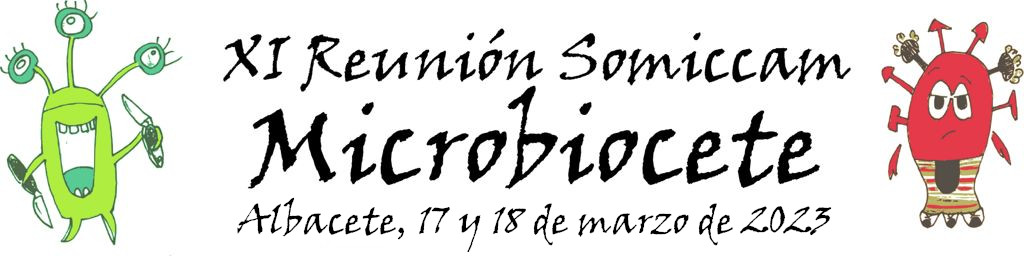 XI Reunión Somiccam
Microbiocete
Albacete, 17 y 18 de marzo de 2023